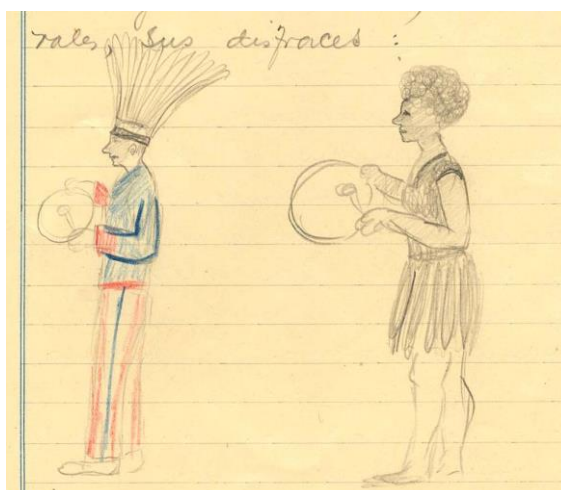 rales, Sus disfraces :